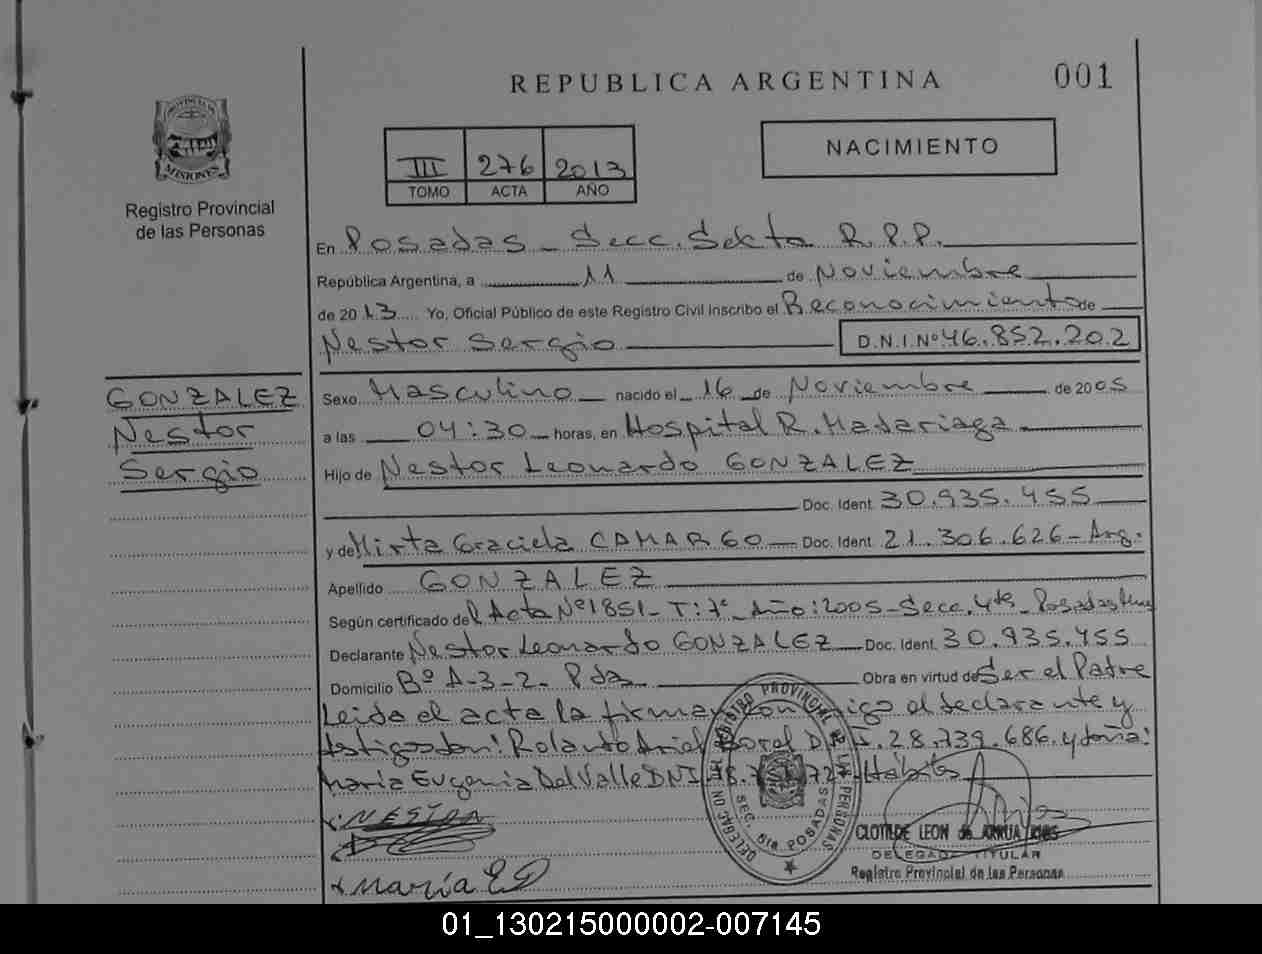 REPUBLICA ARGENTINA
001
PROVINCIA DE
MISIONES
Registro Provincial
de las Personas
III 276 2013
TOMO ACTA AÑO
NACIMIENTO
En Posadas - Secc. Sexta R.P.P.
República Argentina, a 11 de Noviembre
de 2013 Yo, Oficial Público de este Registro Civil inscribo el Reconocimiento de
Nestor Sergio D.N.I.Nº 46.852.202
GONZALEZ
Nestor
Sergio
Sexo Masculino nacido el 16 de Noviembre de 2005
a las 04:30 horas, en Hospital R. Madariaga
Hijo de Nestor Leonardo GONZALEZ
Doc. Ident. 30.935.455
y de Mirta Graciela CAMARGO Doc. Ident. 21.306.626 - Arg.
Apellido GONZALEZ
Según certificado del Acta Nº 1851 - T: 7º - Año: 2005 - Secc. 4ta - Posadas
Declarante Nestor Leonardo GONZALEZ Doc. Ident. 30.935.455
Domicilio Bº A-3-2- Pdas Obra en virtud de Ser el Padre
Leida el acta la firman conmigo el declarante y
testigos don: Rolando Ariel D.N.I. 28.739.686 y doña:
Maria Eugenia Del Valle DNI Habiles
NESTOR
María
DELEGACION DEL REGISTRO PROVINCIAL DE LAS PERSONAS
SEC. 6ta POSADAS
CLOTILDE LEON de ARRUA
DELEGADA TITULAR
Registro Provincial de las Personas
01_130215000002-007145